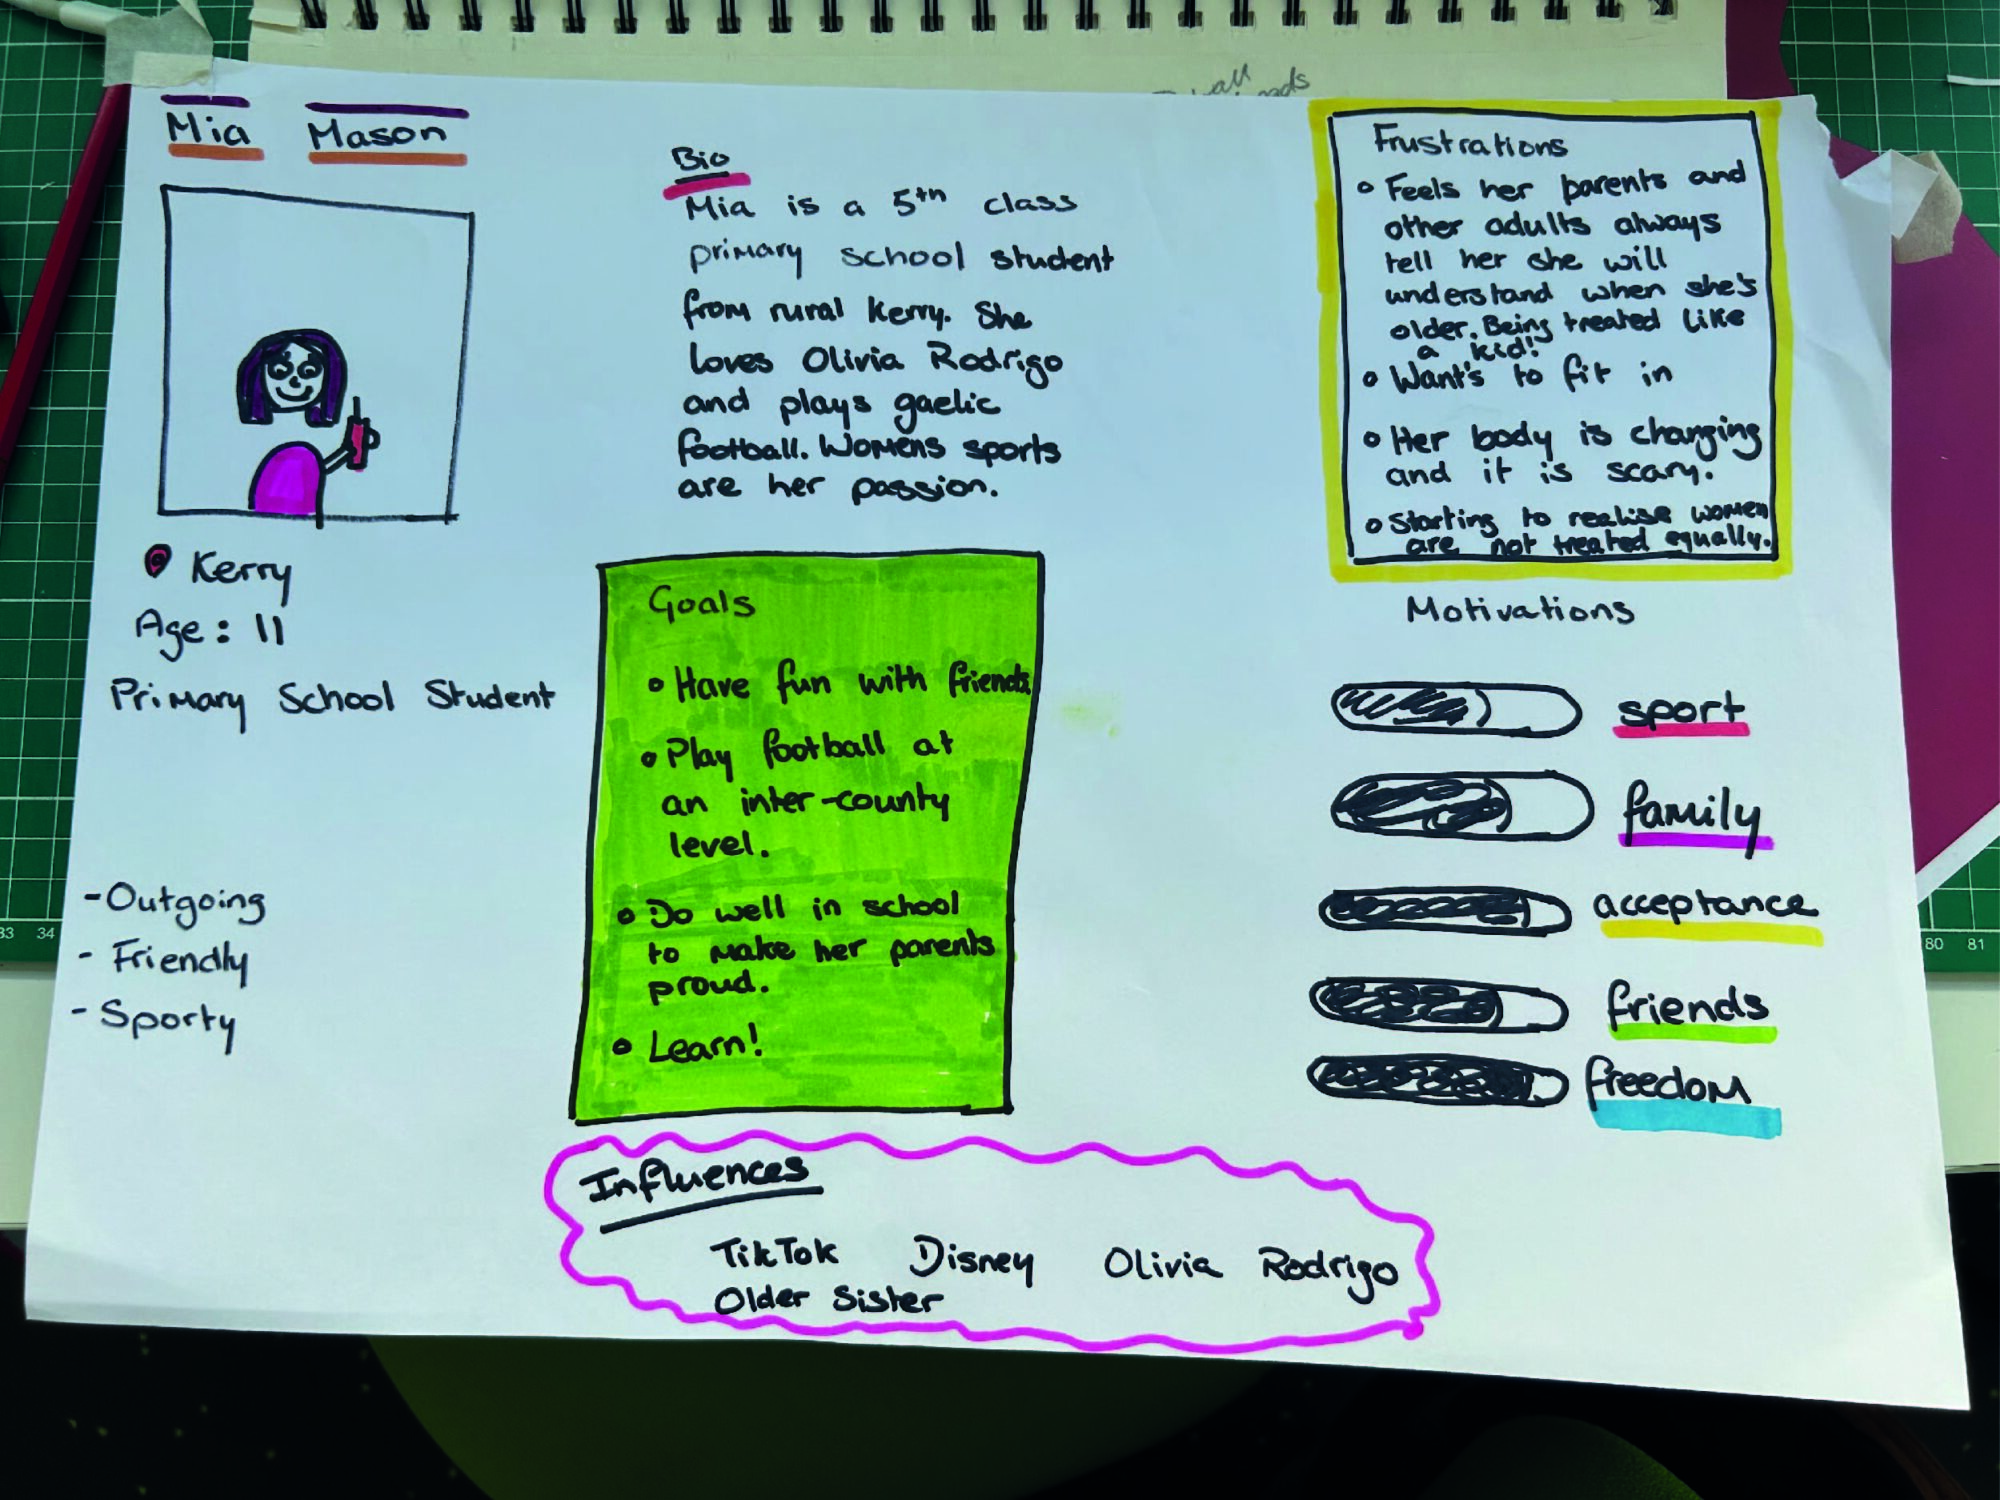 Mia Mason
Kerry
Age: 11
Primary School Student
- Outgoing
- Friendly
- Sporty
Bio
Mia is a 5th class
primary school student
from rural Kerry. She
loves Olivia Rodrigo
and plays gaelic
football. Womens sports
are her passion.
Goals
Have fun with friends
Play football at
an inter-county
level.
Do well in school
to make her parents
proud.
Learn!
Frustrations
Feels her parents and
other adults always
tell her she will
understand when she's
older. Being treated like
a kid!
Want's to fit in
Her body is changing
and it is scary.
Starting to realise women
are not treated equally.
Motivations
sport
family
acceptance
friends
freedom
Influences
TikTok Disney Olivia Rodrigo
Older Sister
33 34
80 81